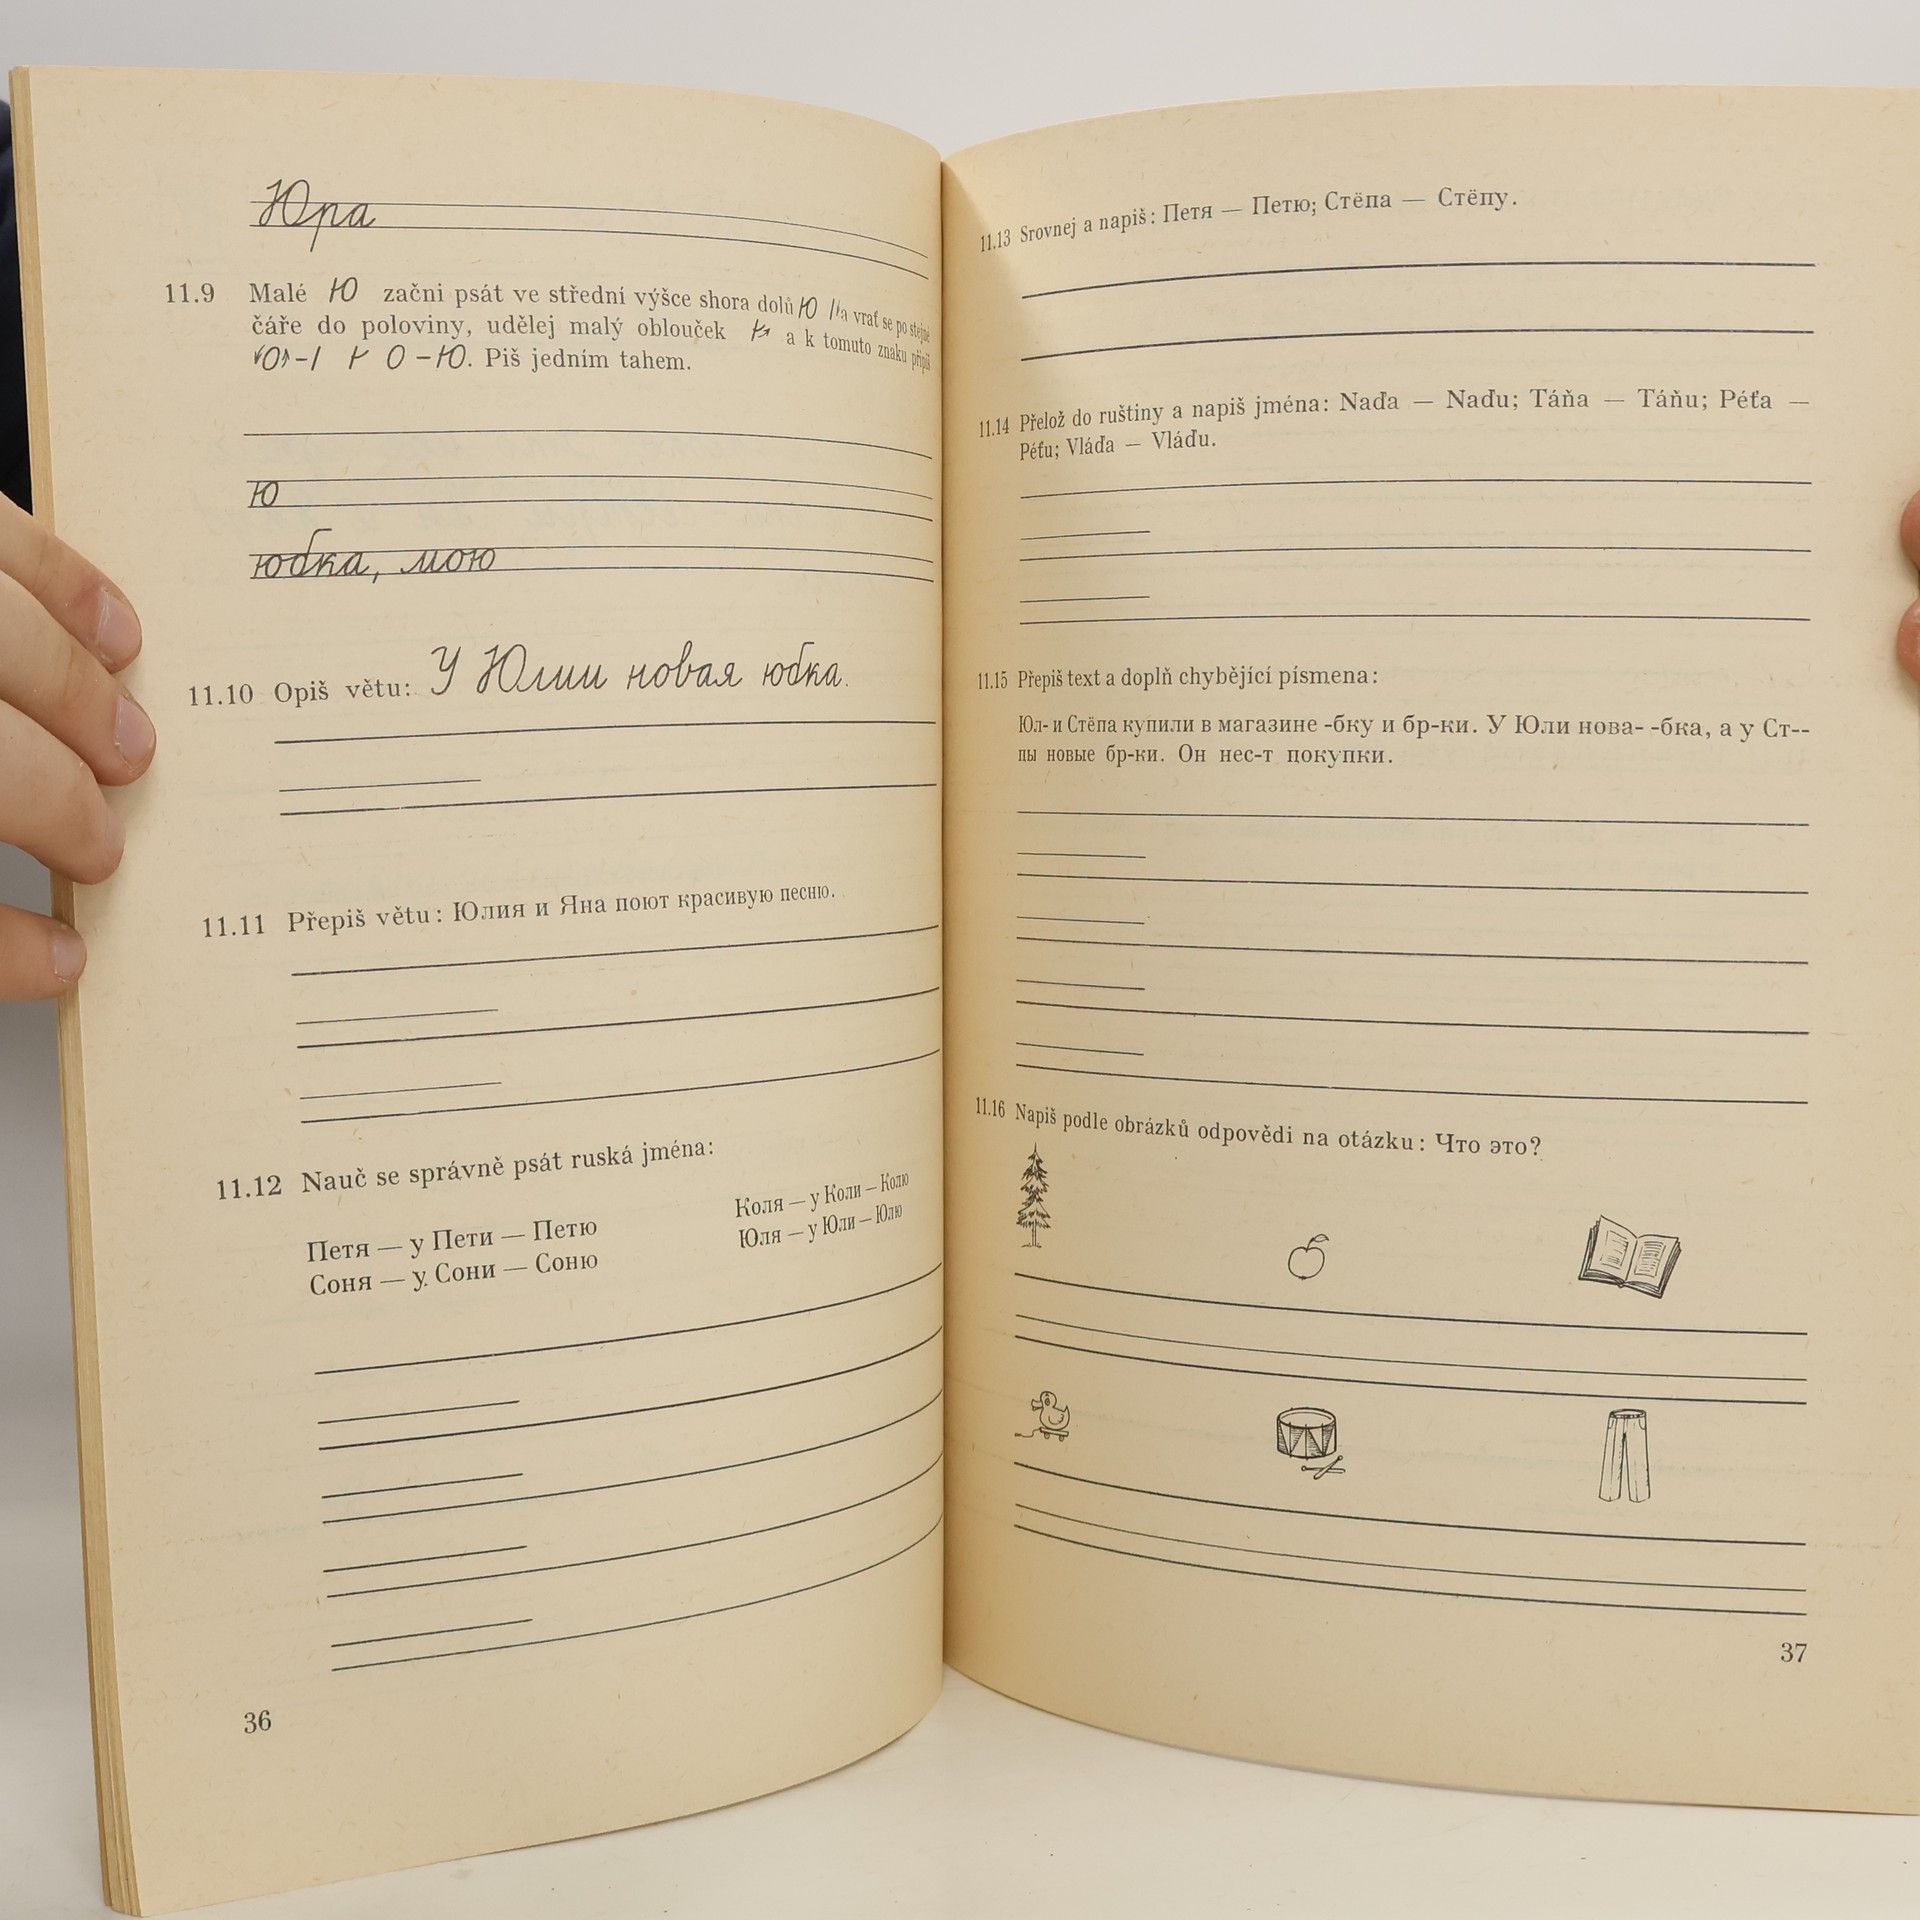 Юра
11.9 Malé ю začni psát ve střední výšce shora dolů ю a vrať se po stejné
čáře do poloviny, udělej malý oblouček a k tomuto znaku připiš
О – ι ⊦ О – ю. Piš jedním tahem.
ю
юбка, мою
11.10 Opiš větu: У Юлии новая юбка.
11.11 Přepiš větu: Юлия и Яна поют красивую песню.
11.12 Nauč se správně psát ruská jména:
Петя — у Пети — Петю
Соня — у Сони — Соню
Коля — у Коли — Колю
Юля — у Юли — Юлю
36
11.13 Srovnej a napiš: Петя — Петю; Стёпа — Стёпу.
11.14 Přelož do ruštiny a napiš jména: Naďa — Naďu; Táňa — Táňu; Péťa —
Péťu; Vláďa — Vláďu.
11.15 Přepiš text a doplň chybějící písmena:
Юл- и Стёпа купили в магазине -бку и бр-ки. У Юли нова- -бка, а у Ст--
пы новые бр-ки. Он нес-т покупки.
11.16 Napiš podle obrázků odpovědi na otázku: Что это?
37